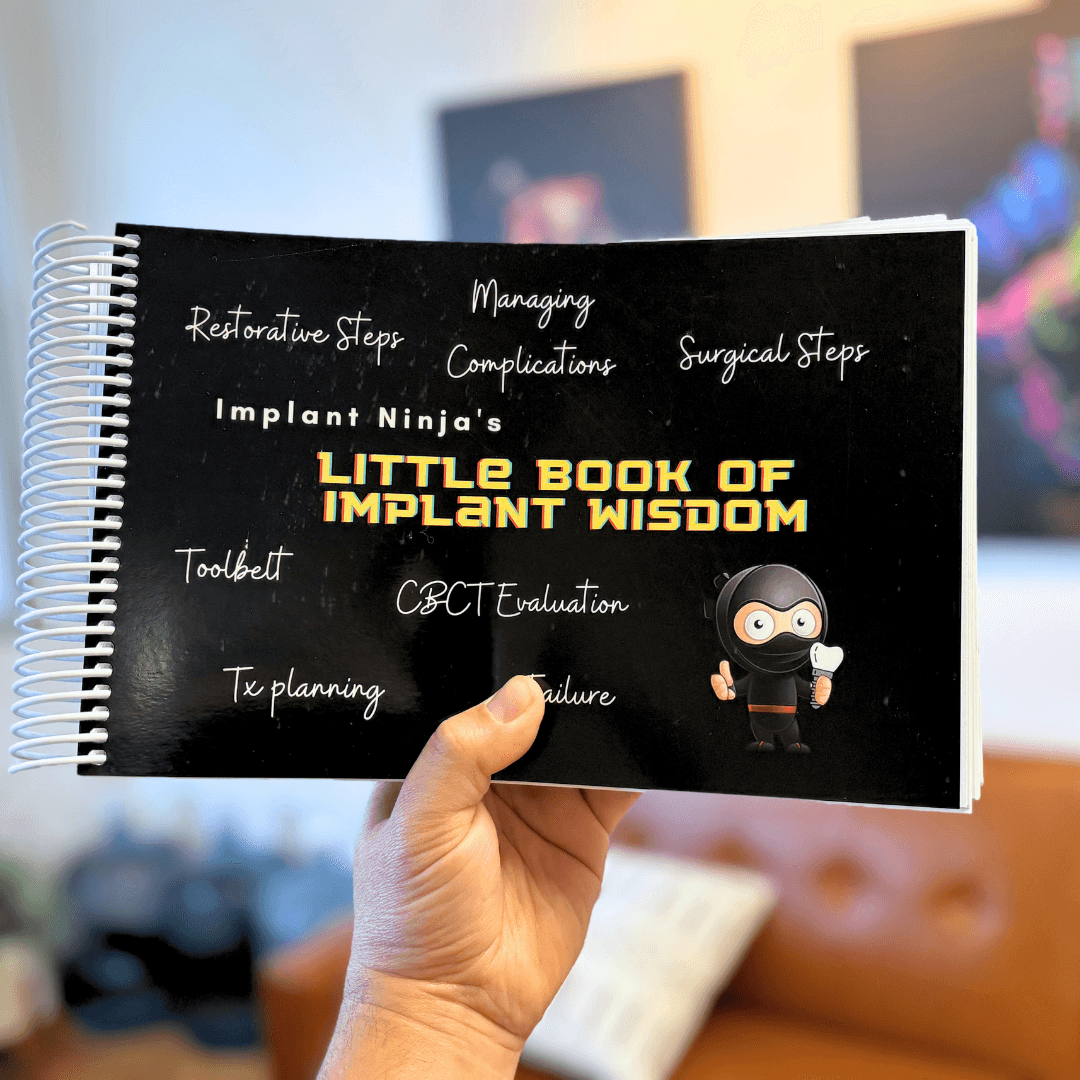 Managing
Restorative Steps
Complications
Surgical Steps
Implant Ninja's
LITTLE BOOK OF
IMPLANT WISDOM
Toolbelt
CBCT Evaluation
Tx planning
Failure